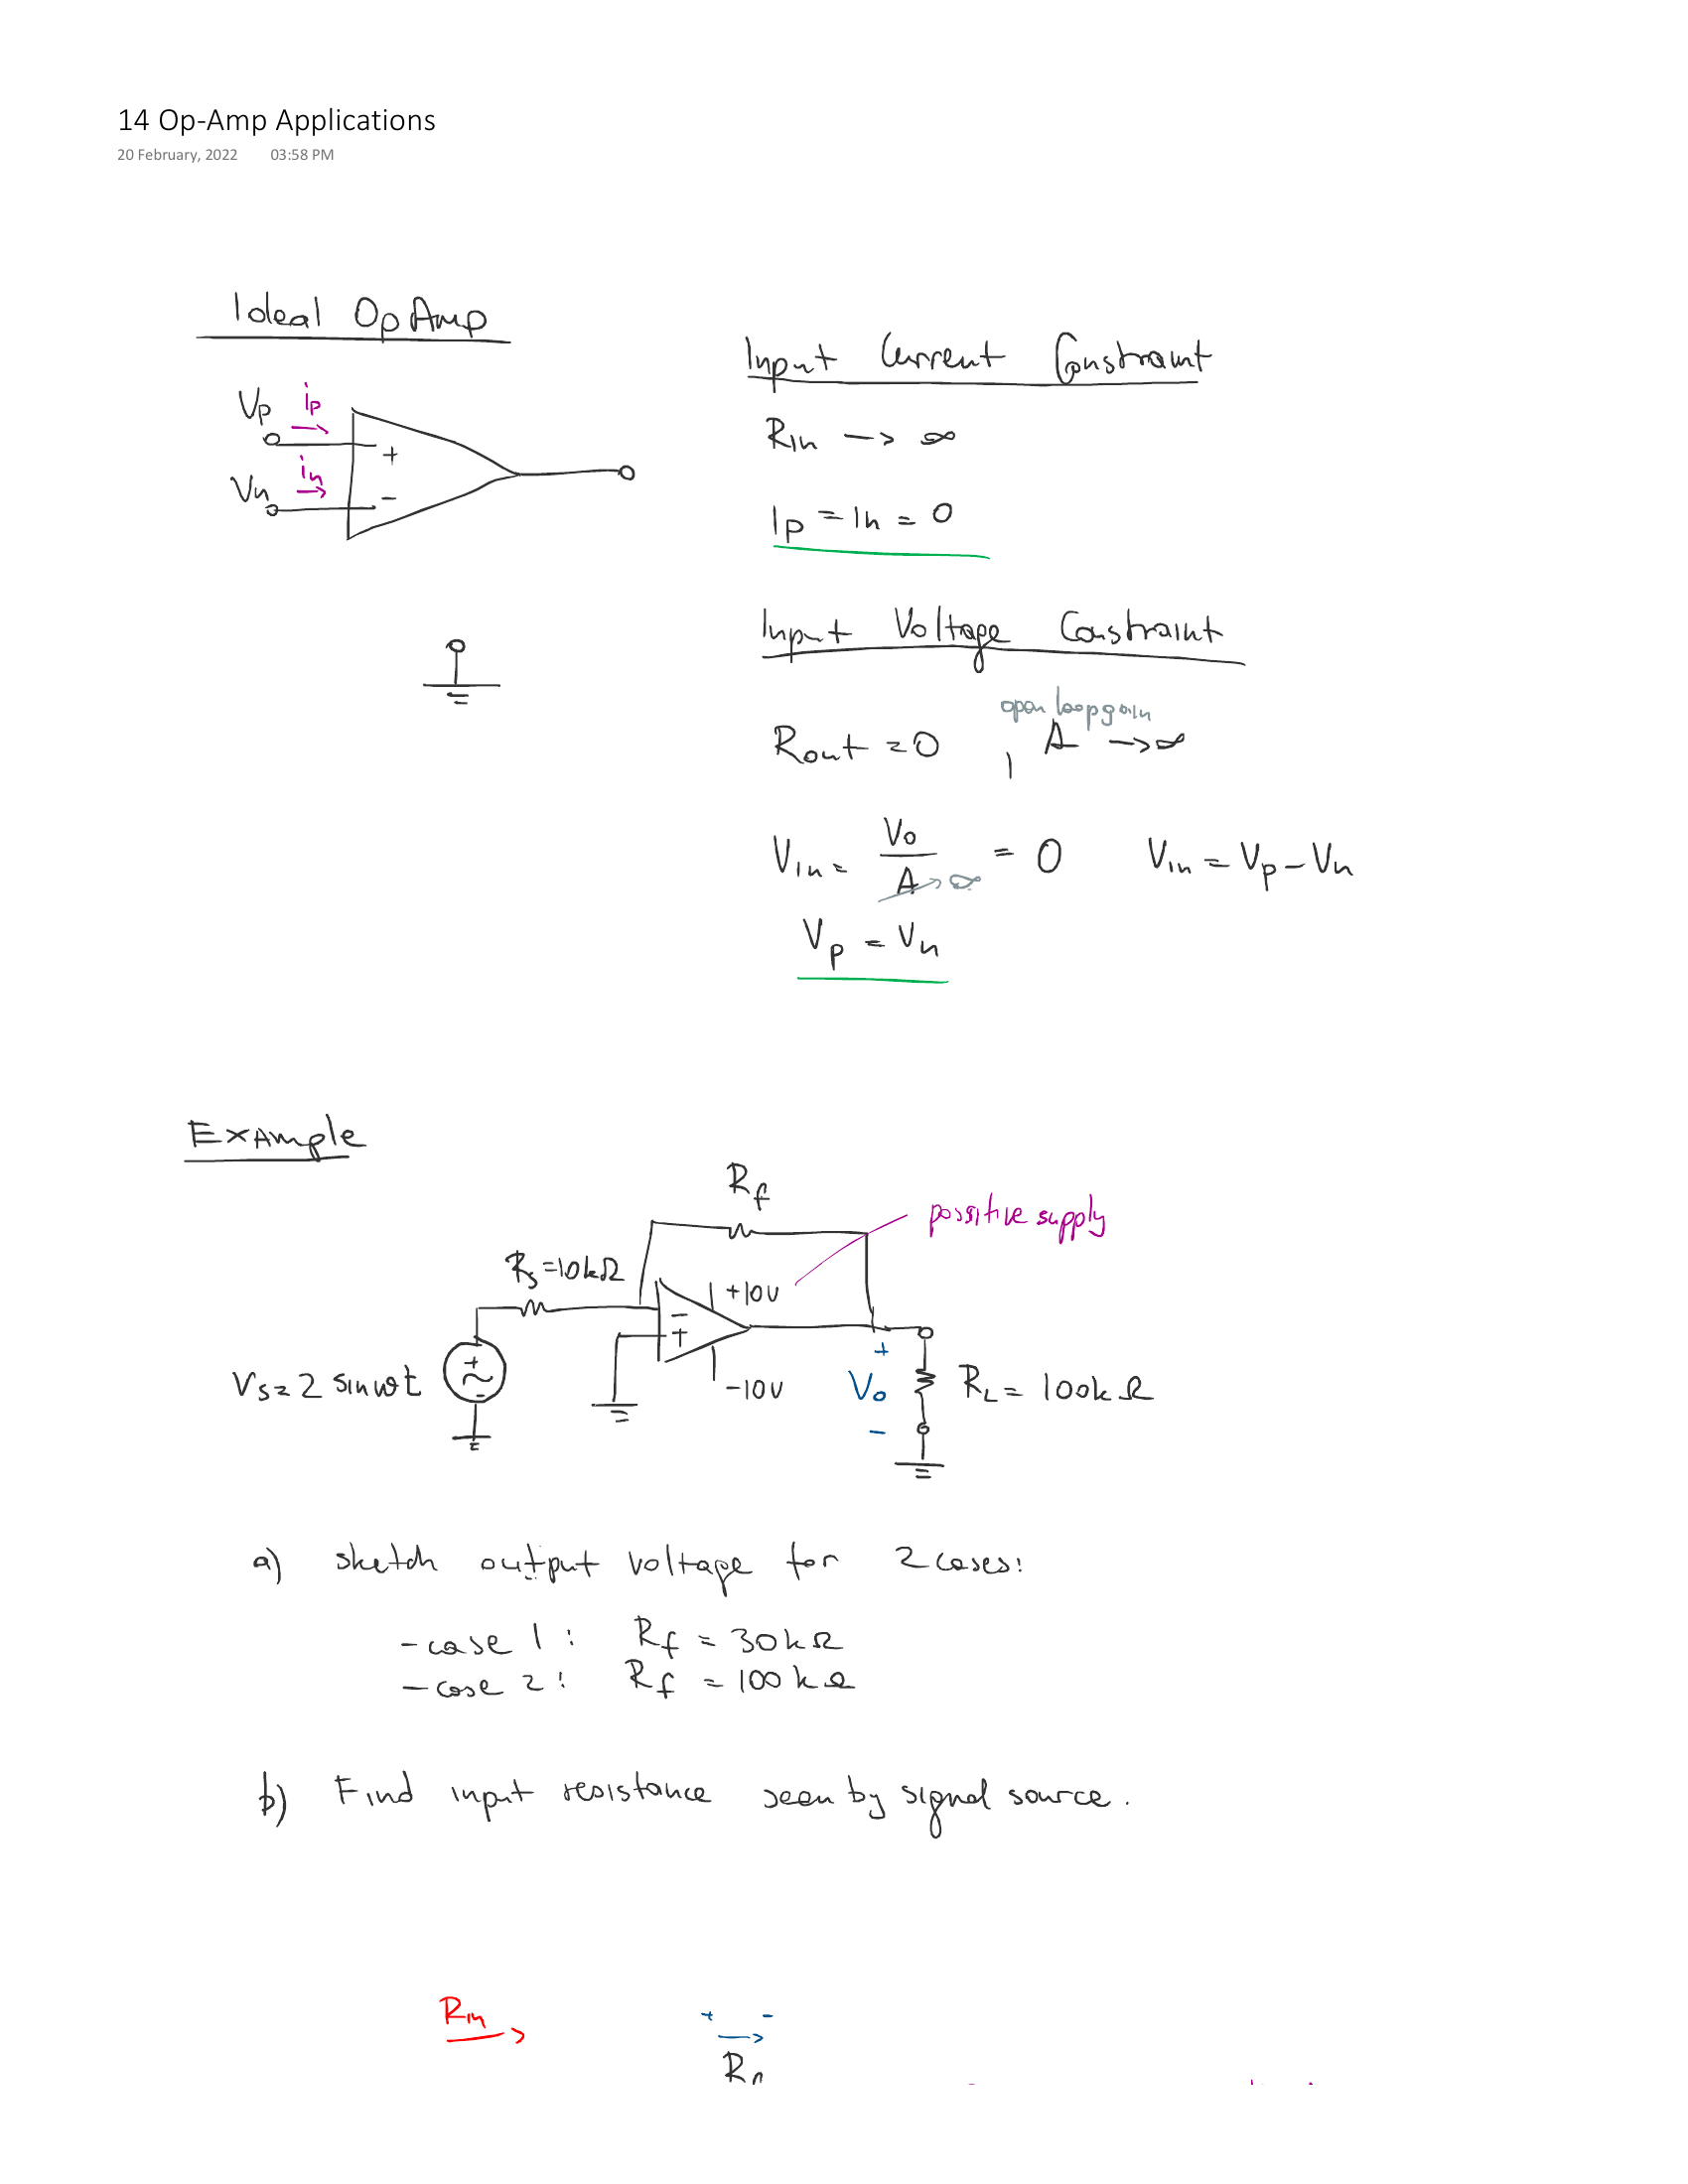 14 Op-Amp Applications
20 February, 2022 03:58 PM
Ideal OpAmp
Vp ip
+
Vn in
-
Input Current Constraint
Rin -> ∞
Ip = In = 0
Input Voltage Constraint
open loop gain
Rout = 0 , A -> ∞
Vin = Vo / A -> ∞ = 0 Vin = Vp - Vn
Vp = Vn
Example
Rf
possitive supply
Rs = 10kΩ
+10V
-
+
-10V
Vs = 2 sin wt
+
-
+
Vo
-
RL = 100kΩ
a) sketch output voltage for 2 cases:
- case 1 : Rf = 30kΩ
- case 2 : Rf = 100kΩ
b) Find input resistance seen by signal source.
Rin
+ -